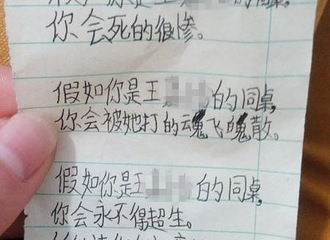 你会死的很惨。
假如你是王的同桌
你会被她打的魂飞魄散。
假如你是王的同桌
你会永不得超生。